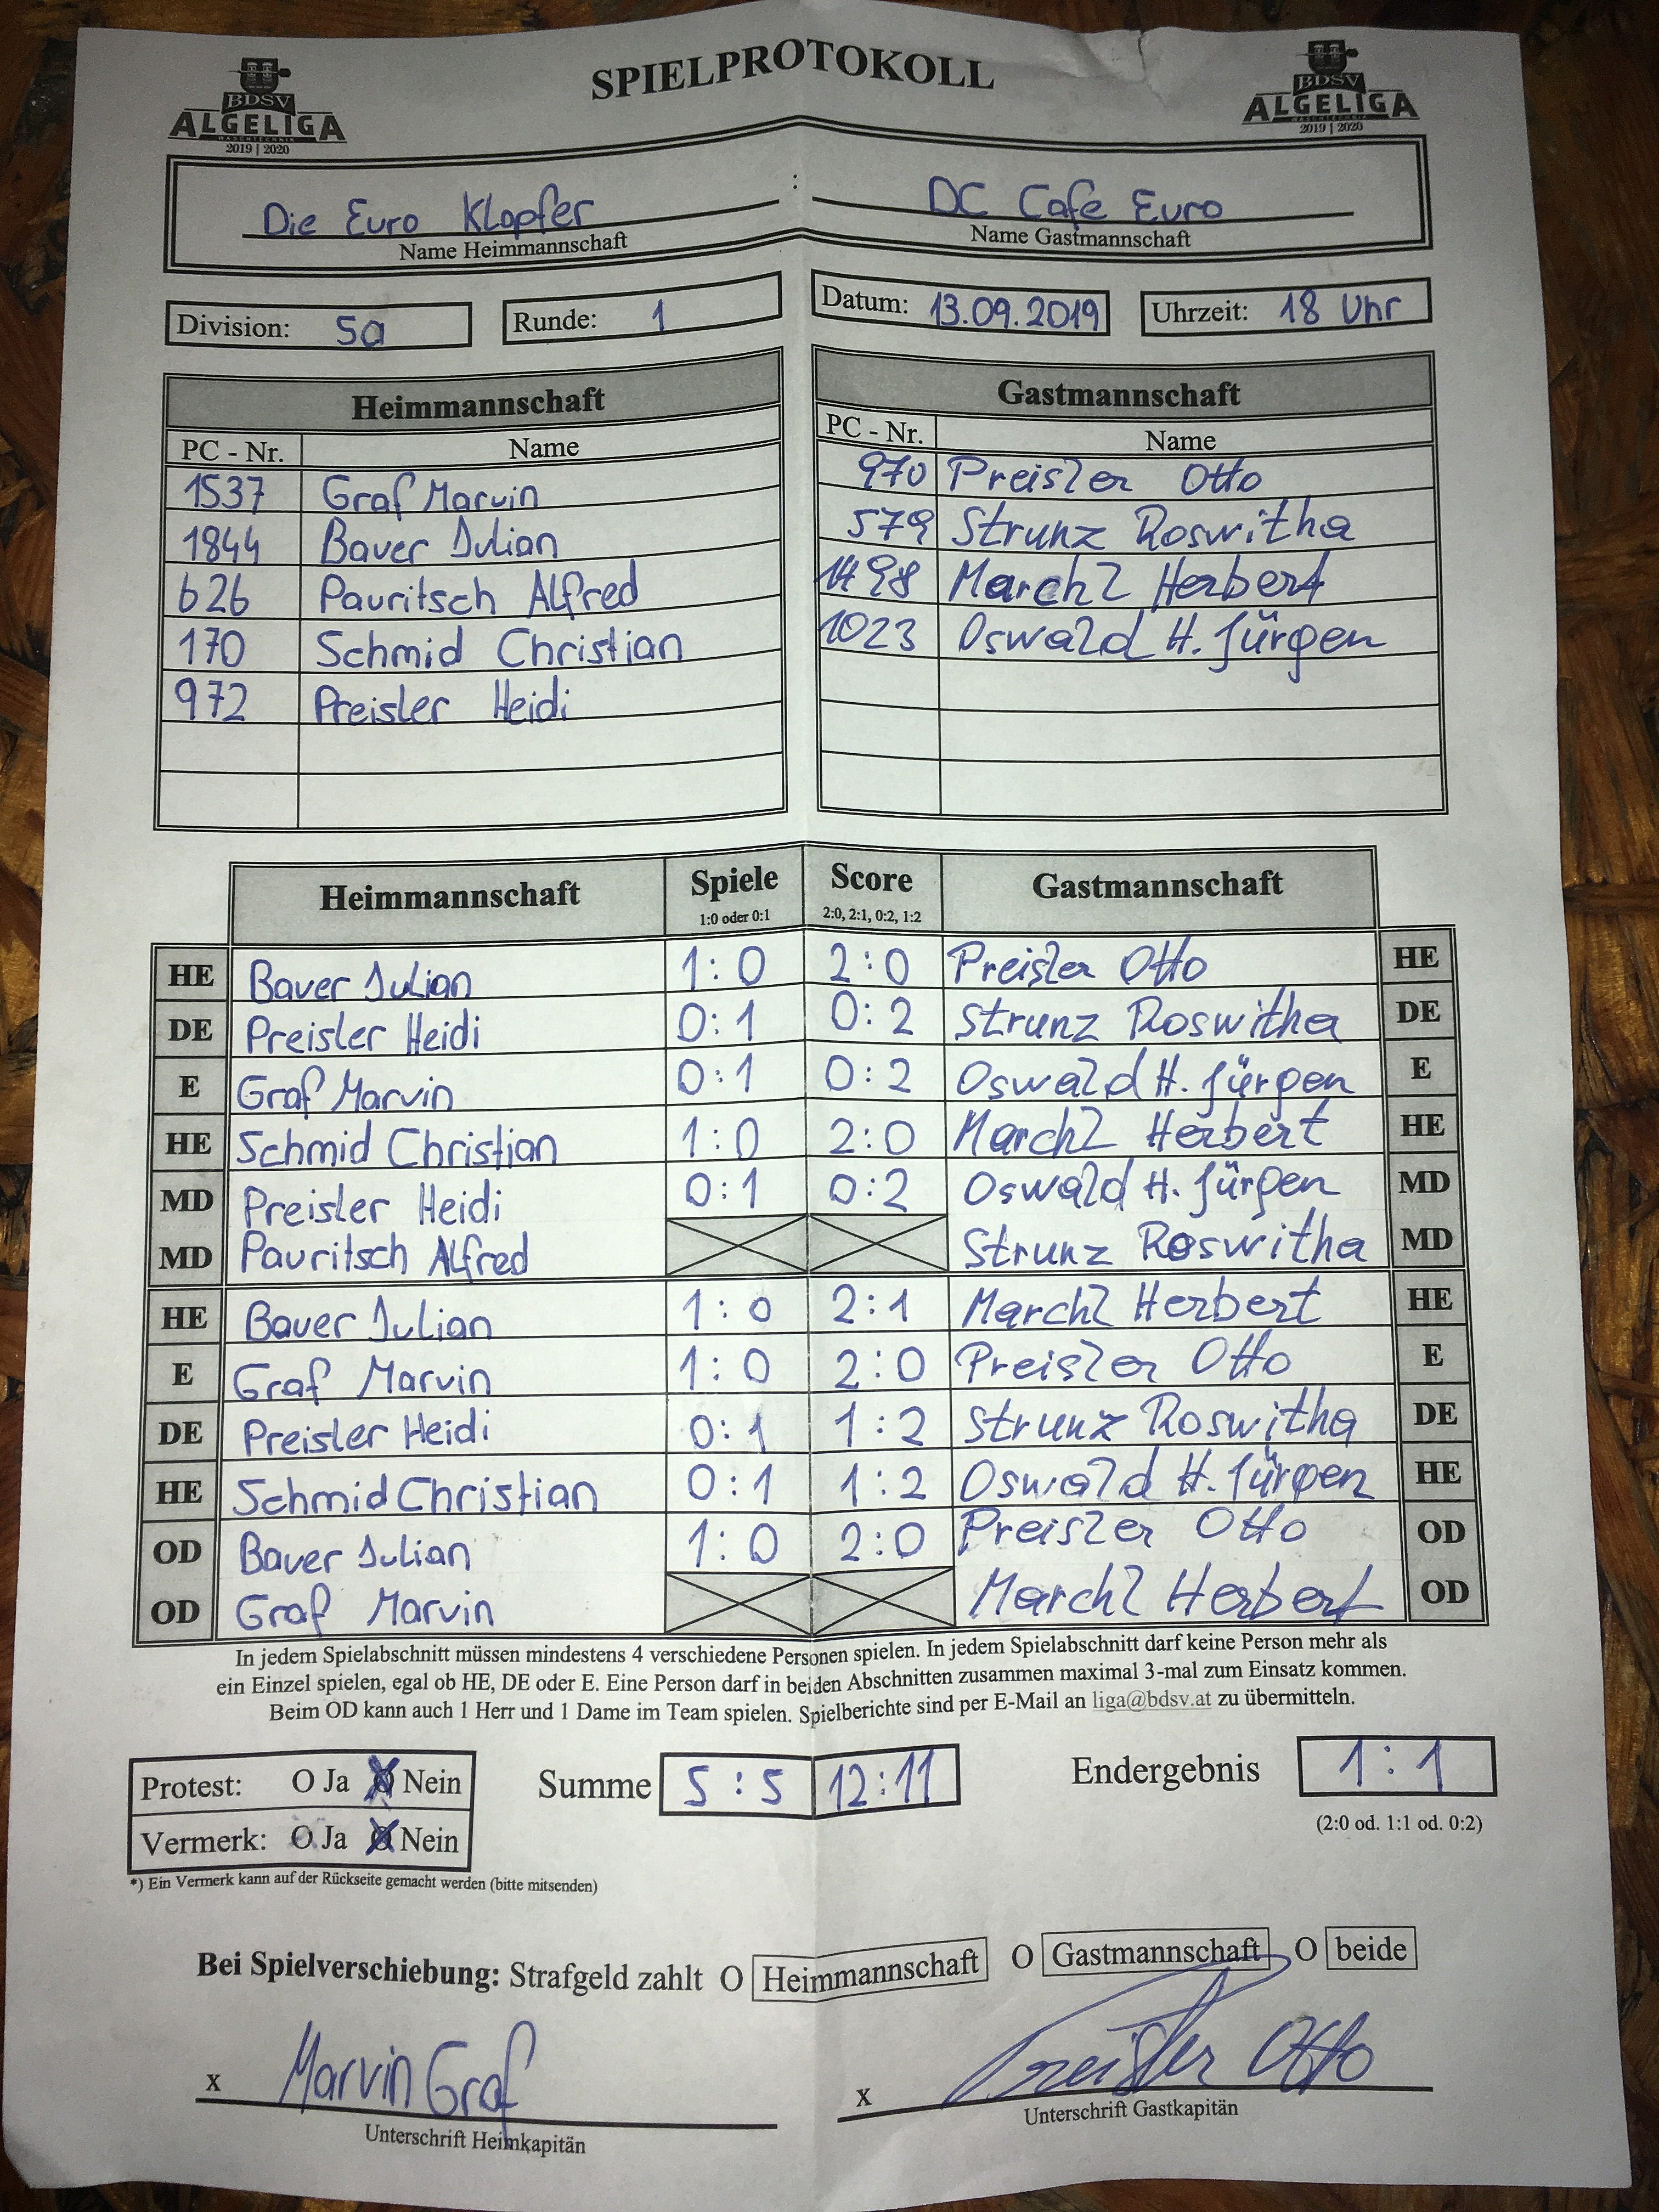 SPIELPROTOKOLL
BDSV
ALGELIGA
WASCHTECHNIK
2019 | 2020
BDSV
ALGELIGA
WASCHTECHNIK
2019 | 2020
Die Euro Klopfer : DC Cafe Euro
Name Heimmannschaft Name Gastmannschaft
Division: 5a Runde: 1 Datum: 13.09.2019 Uhrzeit: 18 Uhr
Heimmannschaft Gastmannschaft
PC - Nr. Name PC - Nr. Name
1537 Graf Marvin 970 Preisler Otto
1844 Bauer Julian 579 Strunz Roswitha
626 Pauritsch Alfred 1498 Marchl Herbert
170 Schmid Christian 1023 Oswald H. Jürgen
972 Preisler Heidi
Heimmannschaft Spiele Score Gastmannschaft
1:0 oder 0:1 2:0, 2:1, 0:2, 1:2
HE Bauer Julian 1:0 2:0 Preisler Otto HE
DE Preisler Heidi 0:1 0:2 Strunz Roswitha DE
E Graf Marvin 0:1 0:2 Oswald H. Jürgen E
HE Schmid Christian 1:0 2:0 Marchl Herbert HE
MD Preisler Heidi 0:1 0:2 Oswald H. Jürgen MD
MD Pauritsch Alfred Strunz Roswitha MD
HE Bauer Julian 1:0 2:1 Marchl Herbert HE
E Graf Marvin 1:0 2:0 Preisler Otto E
DE Preisler Heidi 0:1 1:2 Strunz Roswitha DE
HE Schmid Christian 0:1 1:2 Oswald H. Jürgen HE
OD Bauer Julian 1:0 2:0 Preisler Otto OD
OD Graf Marvin Marchl Herbert OD
In jedem Spielabschnitt müssen mindestens 4 verschiedene Personen spielen. In jedem Spielabschnitt darf keine Person mehr als
ein Einzel spielen, egal ob HE, DE oder E. Eine Person darf in beiden Abschnitten zusammen maximal 3-mal zum Einsatz kommen.
Beim OD kann auch 1 Herr und 1 Dame im Team spielen. Spielberichte sind per E-Mail an liga@bdsv.at zu übermitteln.
Protest: O Ja O Nein Summe 5 : 5 12:11 Endergebnis 1 : 1
Vermerk: O Ja O Nein (2:0 od. 1:1 od. 0:2)
*) Ein Vermerk kann auf der Rückseite gemacht werden (bitte mitsenden)
Bei Spielverschiebung: Strafgeld zahlt O Heimmannschaft O Gastmannschaft O beide
x Marvin Graf x Preisler Otto
Unterschrift Heimkapitän Unterschrift Gastkapitän